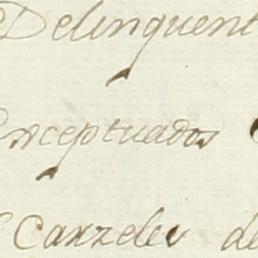 Delinquent
Exceptuados
Carzeles de